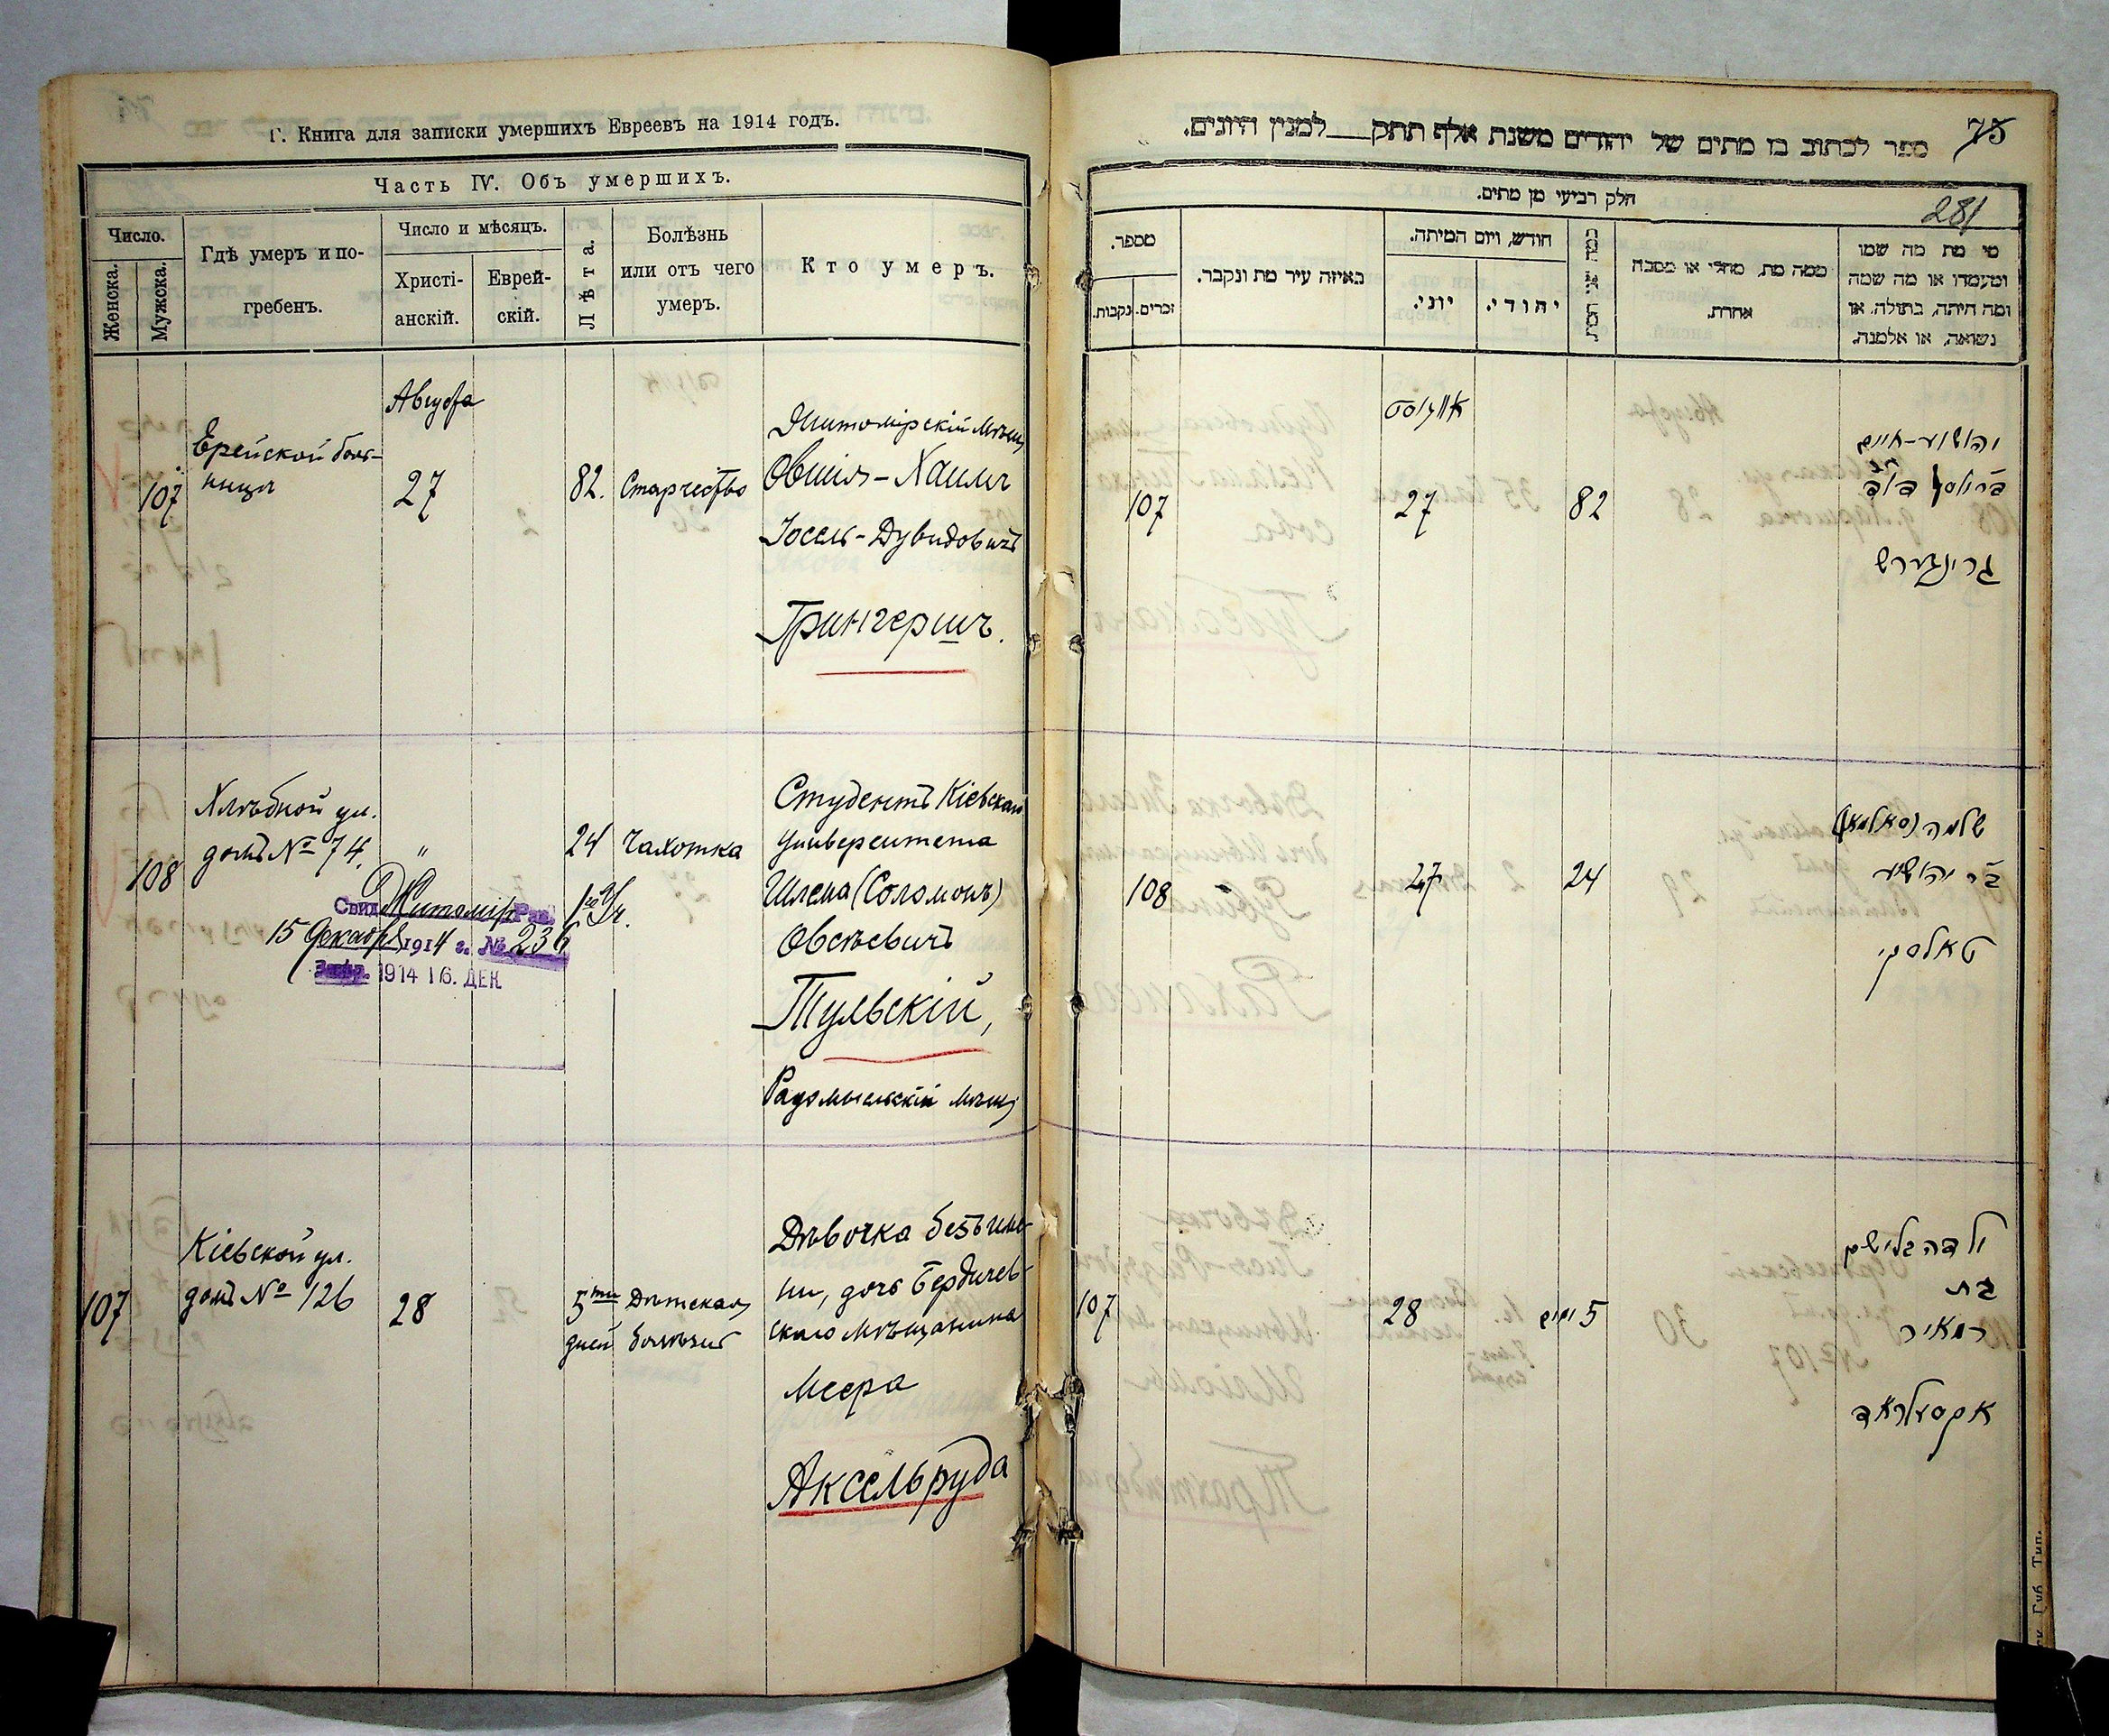 Г. Книга для записки умершихъ Евреевъ на 1914 годъ.
Часть IV. Объ умершихъ.
Число.
Женска.
Мужска.
Гдѣ умеръ и по-
гребенъ.
Число и мѣсяцъ.
Христі-
анскій.
Еврей-
скій.
Лѣта.
Болѣзнь
или отъ чего
умеръ.
Кто умеръ.
107
Ерейской боль-
ницѣ
Августа
27
82.
Старчество
Житомірскій мѣщ.
Овшія-Хаимъ
Іосель-Дувидовичъ
Грингершъ.
108
Хлѣбной ул.
домъ № 74.
"
24
Чахотка
Студентъ Кіевскаго
Университета
Шлема (Соломонъ)
Овсѣевичъ
Тульскій,
Радомысльскій мѣщ.
Свид. Житомір. Рав.
15 Декабря 1914 г. № 236
1914 16. ДЕК
107
Кіевской ул.
домъ № 126
28
5ти
дней
Дѣтская
болѣзнь
Дѣвочка безъ име-
ни, дочь Бердичев-
скаго мѣщанина
Меера
Аксельруда
75
ספר לכתוב בו מתים של יהודים משנת אלף תתק למנין היונים.
281
חלק רביעי מן מתים.
מספר.
זכרים.
נקבות.
באיזה עיר מת ונקבר.
חודש, ויום המיתה.
יוני.
יהודי.
ממה מת, מחלי או מסבה
אחרת.
מי מת מה שמו
ומעמדו או מה שמה
ומה היתה, בתולה, או
נשואה, או אלמנה.
107
אווגוסט
27
82
יהושע-חיים
גרינגערש
108
27
24
שלמה (סאלאמאן)
בר יהושע
טאלסקי
107
28
5 ימים
ילדה בלי שם
בת
ר מאיר
אקסעלראד